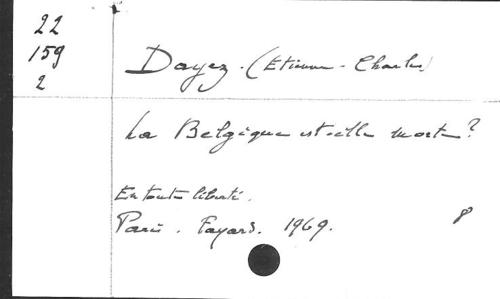 22
159
2
Dayez. (Etienne-Charles)
La Belgique est-elle morte?
En toute liberté.
Paris. Fayard. 1969.
8